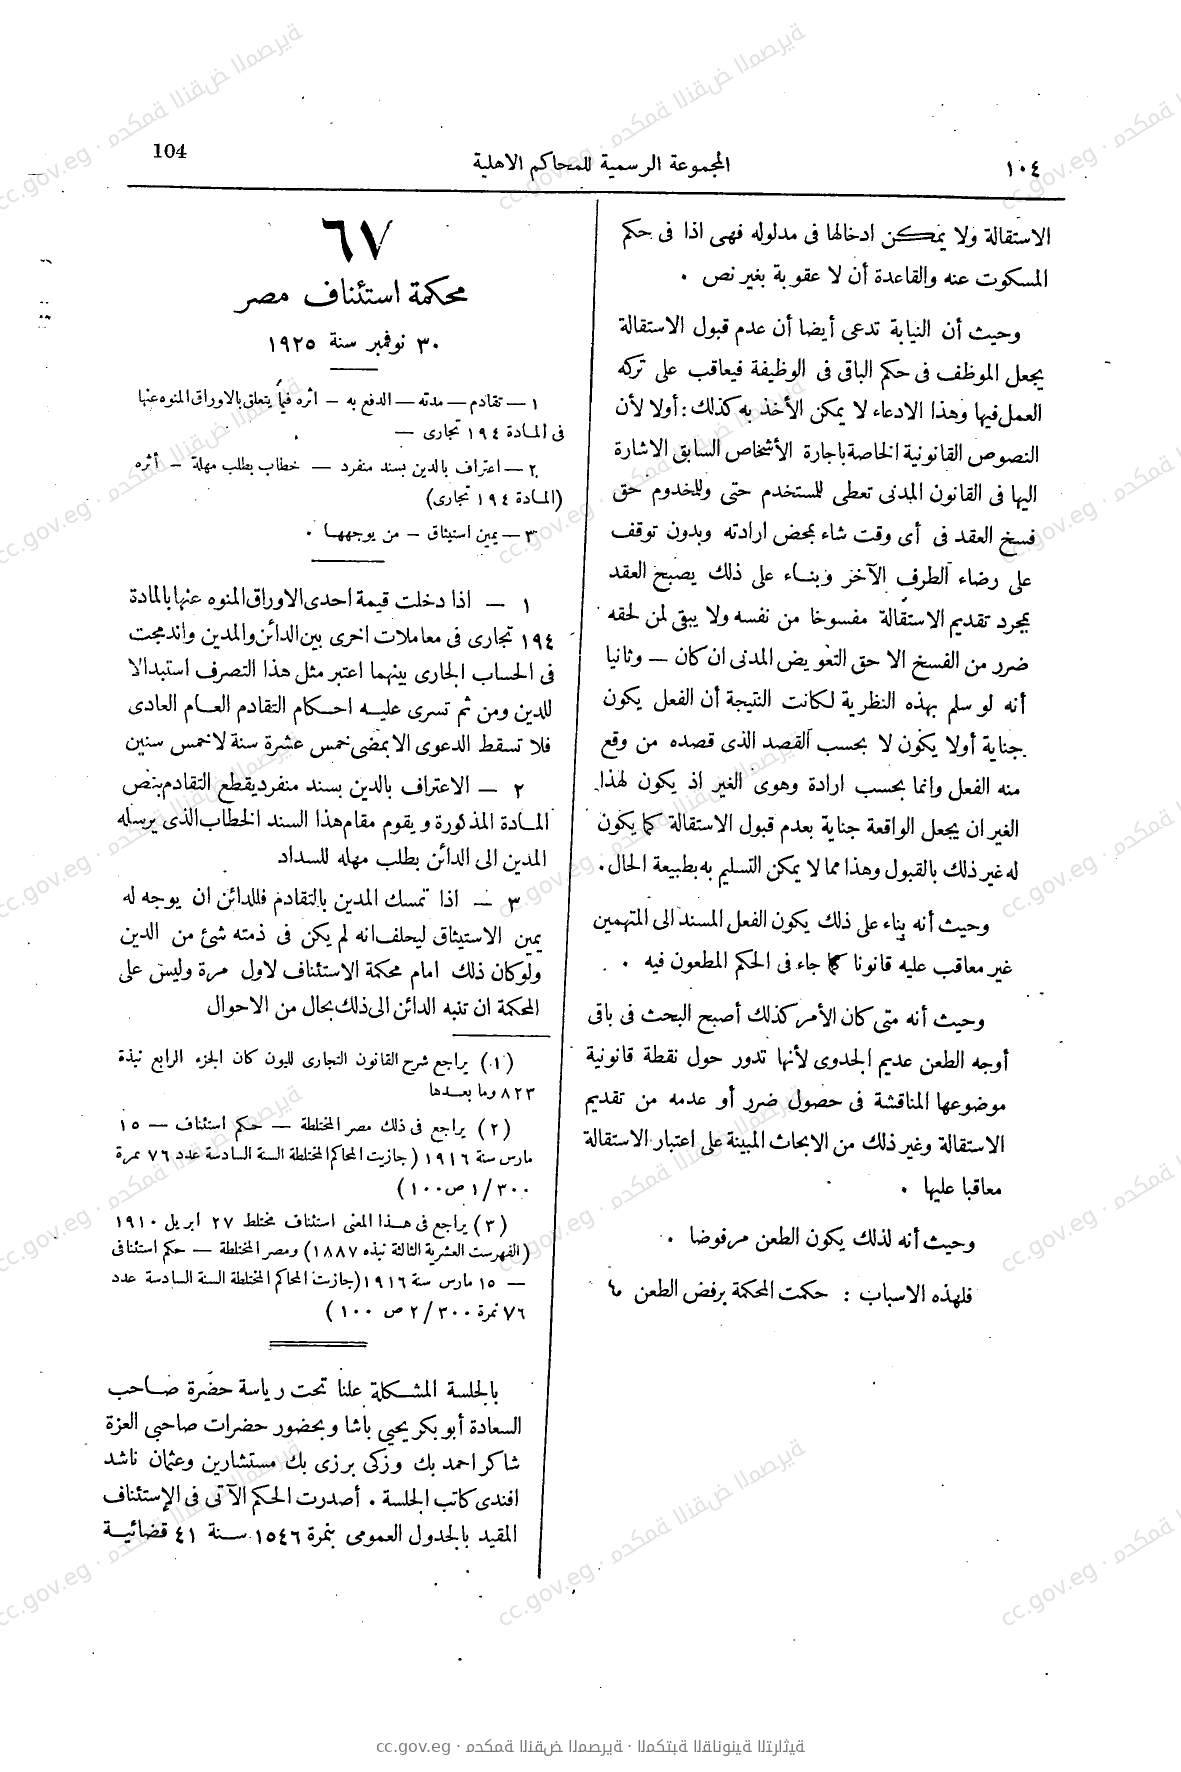 ١٠٤
المجموعة الرسمية للمحاكم الاهلية
104
الاستقالة ولا يمكن ادخالها فى مدلوله فهى اذا فى حكم
المسكوت عنه والقاعدة أن لا عقوبة بغير نص .
وحيث أن النيابة تدعى أيضا أن عدم قبول الاستقالة
يجعل الموظف فى حكم الباقى فى الوظيفة فيعاقب على تركه
العمل فيها وهذا الادعاء لا يمكن الأخذ به كذلك : أولا لأن
النصوص القانونية الخاصة باجارة الأشخاص السابق الاشارة
اليها فى القانون المدنى تعطى للمستخدم حتى وللمخدوم حق
فسخ العقد فى أى وقت شاء بمحض ارادته وبدون توقف
على رضاء الطرف الآخر وبناء على ذلك يصبح العقد
بمجرد تقديم الاستقالة مفسوخا من نفسه ولا يبقى لمن لحقه
ضرر من الفسخ الا حق التعويض المدنى ان كان — وثانيا
أنه لو سلم بهذه النظرية لكانت النتيجة أن الفعل يكون
جناية أولا يكون لا بحسب القصد الذى قصده من وقع
منه الفعل وانما بحسب ارادة وهوى الغير اذ يكون لهذا
الغير ان يجعل الواقعة جناية بعدم قبول الاستقالة كما يكون
له غير ذلك بالقبول وهذا مما لا يمكن التسليم به بطبيعة الحال .
وحيث أنه بناء على ذلك يكون الفعل المسند الى المتهمين
غير معاقب عليه قانونا كما جاء فى الحكم المطعون فيه .
وحيث أنه متى كان الأمر كذلك أصبح البحث فى باقى
أوجه الطعن عديم الجدوى لأنها تدور حول نقطة قانونية
موضوعها المناقشة فى حصول ضرر أو عدمه من تقديم
الاستقالة وغير ذلك من الابحاث المبينة على اعتبار الاستقالة
معاقبا عليها .
وحيث أنه لذلك يكون الطعن مرفوضا .
فلهذه الاسباب : حكمت المحكمة برفض الطعن
٦٧
محكمة استئناف مصر
٣٠ نوفمبر سنة ١٩٢٥
١ — تقادم — مدته — الدفع به — اثره فيما يتعلق بالاوراق المنوه عنها
فى المادة ١٩٤ تجارى —
٢ — اعتراف بالدين بسند منفرد — خطاب بطلب مهلة — أثره
(المادة ١٩٤ تجارى)
٣ — يمين استيثاق — من يوجهها .
١ — اذا دخلت قيمة احدى الاوراق المنوه عنها بالمادة
١٩٤ تجارى فى معاملات اخرى بين الدائن والمدين واندمجت
فى الحساب الجارى بينهما اعتبر مثل هذا التصرف استبدالا
للدين ومن ثم تسرى عليه احكام التقادم العام العادى
فلا تسقط الدعوى الا بمضى خمس عشرة سنة لا خمس سنين
٢ — الاعتراف بالدين بسند منفرد يقطع التقادم بنص
المادة المذكورة ويقوم مقام هذا السند الخطاب الذى يرسله
المدين الى الدائن بطلب مهله للسداد
٣ — اذا تمسك المدين بالتقادم فللدائن ان يوجه له
يمين الاستيثاق ليحلف انه لم يكن فى ذمته شئ من الدين
ولو كان ذلك امام محكمة الاستئناف لاول مرة وليس على
المحكمة ان تنبه الدائن الى ذلك بحال من الاحوال
(١) يراجع شرح القانون التجارى لليون كان الجزء الرابع نبذة
٨٢٣ وما بعدها
(٢) يراجع فى ذلك مصر المختلطة — حكم استئناف — ١٥
مارس سنة ١٩١٦ (جازيت المحاكم المختلطة السنة السادسة عدد ٧٦ نمرة
٣٠٠ / ١ ص ١٠٠)
(٣) يراجع فى هذا المعنى استئناف مختلط ٢٧ ابريل ١٩١٠
(الفهرست العشرية الثالثة نبذه ١٨٨٧) ومصر المختلطة — حكم استئنافى
— ١٥ مارس سنة ١٩١٦ (جازيت المحاكم المختلطة السنة السادسة عدد
٧٦ نمرة ٣٠٠ / ٢ ص ١٠٠)
بالجلسة المشكلة علنا تحت رياسة حضرة صاحب
السعادة أبو بكر يحيى باشا وبحضور حضرات صاحبى العزة
شاكر احمد بك وزكى برزى بك مستشارين وعثمان ناشد
افندى كاتب الجلسة . أصدرت الحكم الآتى فى الإستئناف
المقيد بالجدول العمومى بنمرة ١٥٤٦ سنة ٤١ قضائية
cc.gov.eg · محكمة النقض المصرية · المكتبة القانونية التراثية